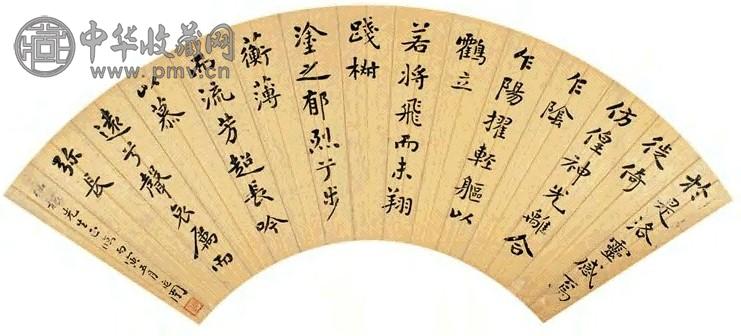 中华收藏网
www.pmv.cn
於是洛靈感焉
徙倚
仿偟神光離合
乍陰
乍陽擢輕軀以
鶴立
若將飛而未翔
踐椒
塗之郁烈兮步
蘅薄
而流芳超長吟
以慕
遠兮聲哀厲而
弥長
先生正 丙寅五月